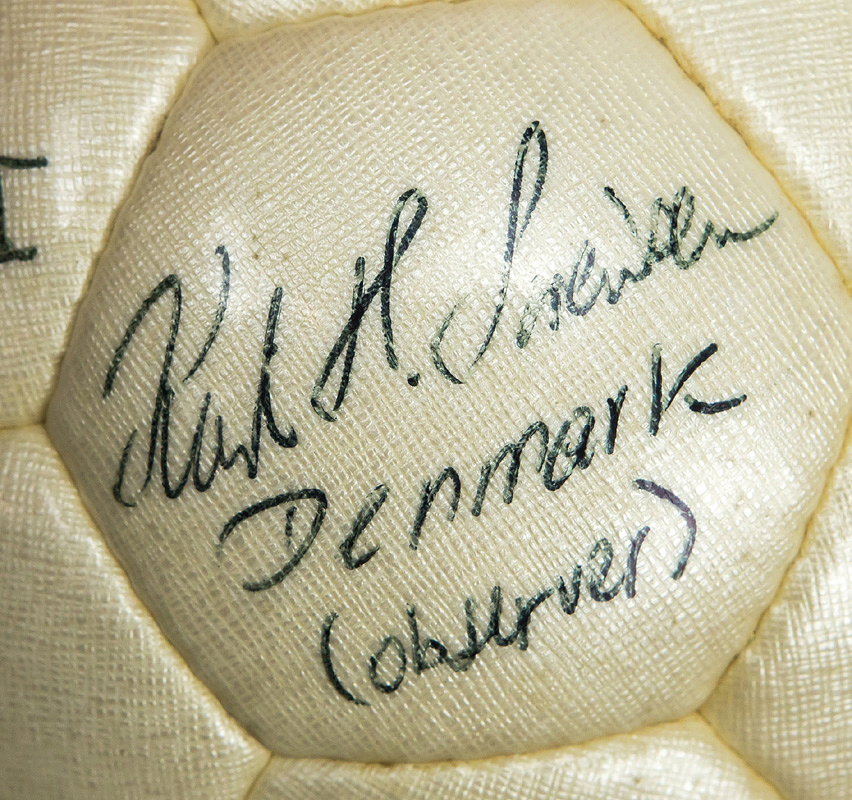 I
Kurt H. Sørensen
Denmark
(observer)